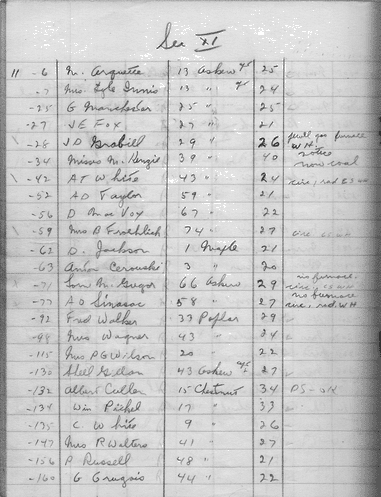 Sec XI
11 -6 M. Arquette 13 Askew 25
-7 Mrs. Lyle Innis 13 " 24
-25 G Manchester 25 " 25
-27 J E Fox 27 " 21
-28 J D Grabill 29 " 26 full gas furnace W.H.
-34 Minnie M. 39 " 40 notice now coal
-42 A T White 43 " 24 circ, rad
-52 A D Taylor 59 " 21
-56 D. Mac Vox 67 " 22
-59 Mrs B Froehlich 74 " 27
-62 D. Jackson 1 Maple 21
-63 Anton 3 " 20
-71 Gregor 66 Askew 29 no furnace, circ,
-77 A D Sinasac 58 " 27 no furnace circ, rad. W.H
-92 Fred Walker 37 Poplar 29
-98 Mrs Wagner 43 " 24
-115 Mrs P G Wilson 20 " 22
-130 43 Askew 27
-132 Albert Culler 15 Chestnut 34
-134 Wm Pickel 17 " 33
-135 C. White 9 " 26
-147 Mrs R Walters 41 " 27
-156 P Russell 48 " 21
-160 G 44 " 22